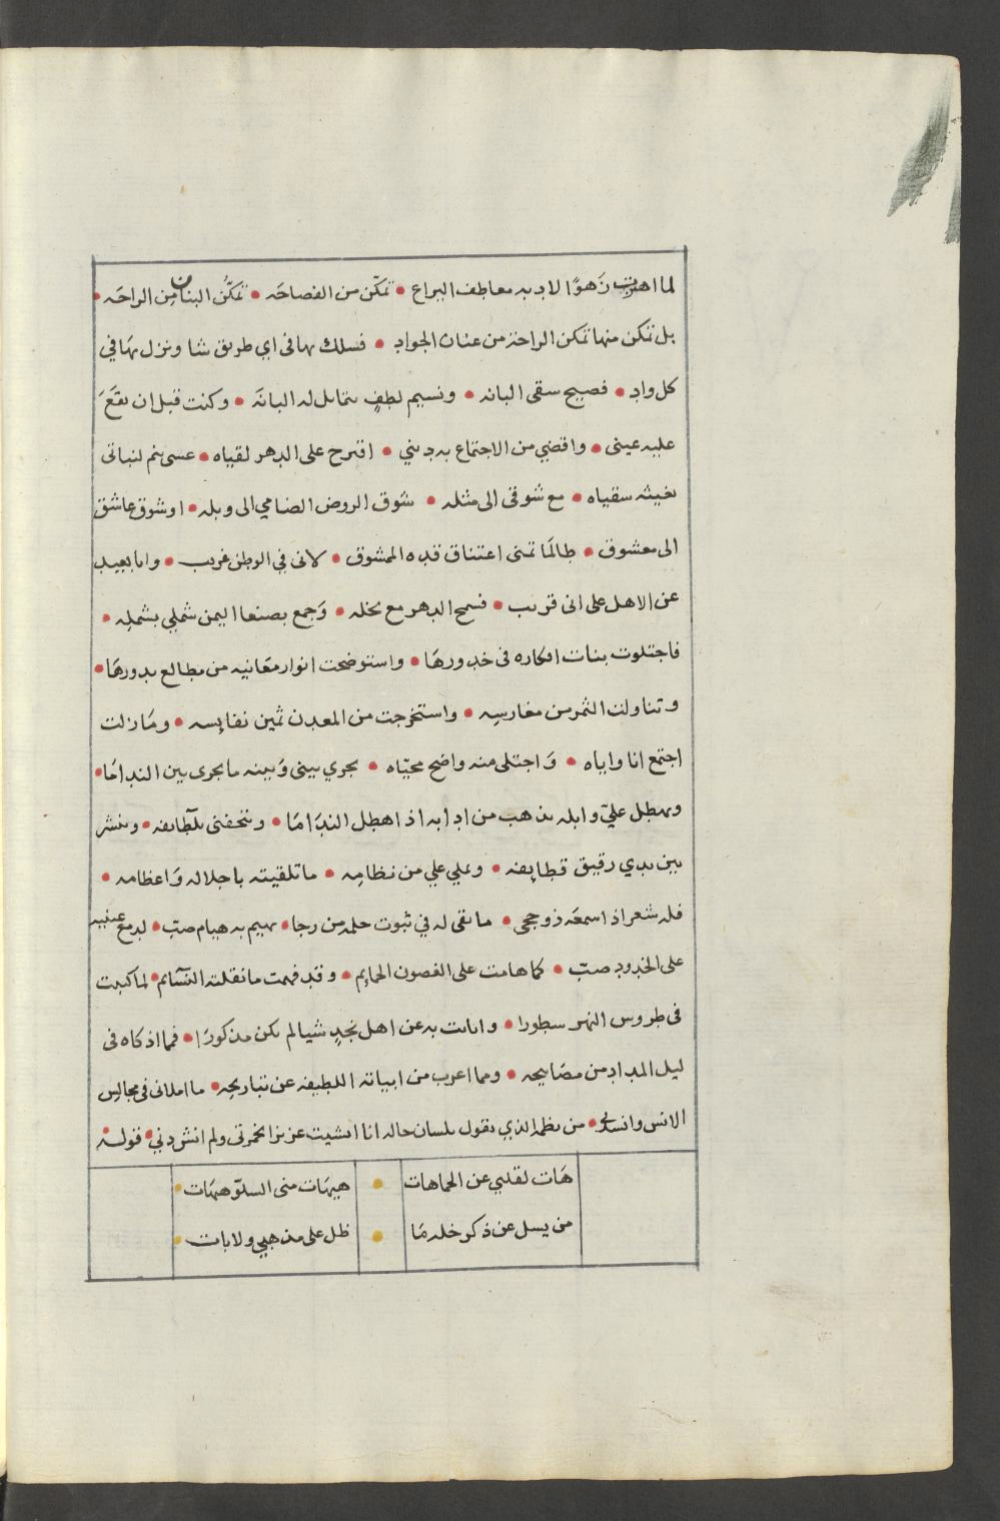 لما اهتزت زهوًا لادبه معاطف اليراع • تمكّن من الفصاحه • تمكّن البنان من الراحَه •
بل تمكن منها تمكن الراحة من عنان الجواد • فسلك بها في اي طريق شا ونزل بهَا في
كل واد • فصيح سقى البانه • ونسيم لطفٍ يتمايل له البانَه • وكنت قبل ان تقعَ
عليه عيني • واقضي من الاجتماع به ديني • اقترح على الدهر لقياه • عسى ينم لنباتى
بغيثه سقياه • مع شوقى الى مثله • شوق الروض الضامي الى وبله • او شوق عاشق
الى معشوق • طالمَا تمنى اعتناق قده الممشوق • لانى في الوطن غريب • وانا بعيد
عن الاهل على انى قريب • فسمح الدهر مع بخله • وَجمع بصنعا اليمن شملي بشملِه •
فاجتلوت بنات افكاره فى خدورهَا • واستوضحت انوار معَانيه من مطالع بدورهَا •
وتناولت الثمر من مغارسِه • واستخرجت من المعدن ثمين نفايسه • ومَا زلت
اجتمع انا واياه • وَاجتلى منه واضح محيّاه • يجري بيني وَبينه ما يجرى بين الندامَا •
ويهطل عليّ وابله بذهب من ادابه اذا هطل الندَامَا • ويتحفنى بلطَايفه • وينشر
بين يدي رقيق قطايفه • ويملي علي من نظامِه • ما تلقيته باجلاله وَاعظامه •
فله شعر اذا سمعَه ذو حجى • ما بقى له في ثبوت حلمه من رجا • يهيم به هيام صبّ • لدمع عينيه
على الخدود صبّ • كما هامت على الغصون الحمايم • وقد فهمت ما نقلته النسَايم • لما كتبت
فى طروس النهر سطورا • واباتت به عن اهل نجدٍ شيا لم يكن مذكورًا • فما اذكاه فى
ليل المداد من مصَابيحه • ومما اعرب من ابياته اللطيفه عن تباريحِه • ما املانى في مجالِس
الانس وانسلى • من نظمه الذي يقول بلسان حاله انا انشيت عزيزا بخمرتى ولم انش دني • قوله
هَات لقلبي عن الحما هات • هيهَات منى السلوّ هيهَات •
من يسل عن ذكر خله مَا • ظل على مذهبي ولا بات •